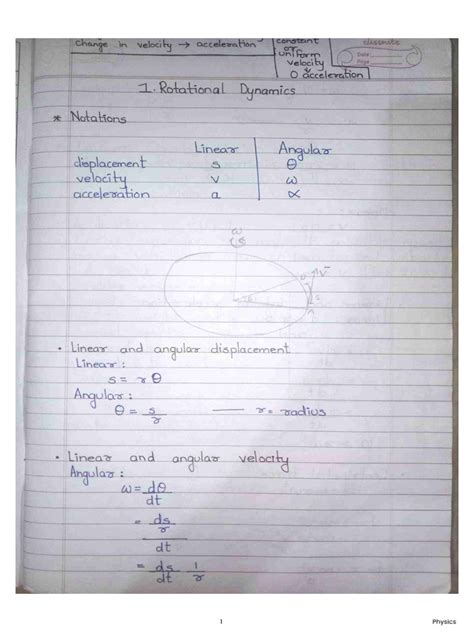 change in velocity → acceleration
constant
or
uniform
velocity
0 acceleration
classmate
Date
Page
1. Rotational Dynamics
* Notations
Linear Angular
displacement s θ
velocity v ω
acceleration a α
ω
• Linear and angular displacement
Linear :
s = r θ
Angular :
θ = s/r —— r = radius
• Linear and angular velocity
Angular :
ω = dθ/dt
= ds/r
dt
= ds/dt 1/r
1
Physics